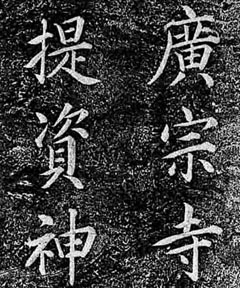 廣宗寺
提資神